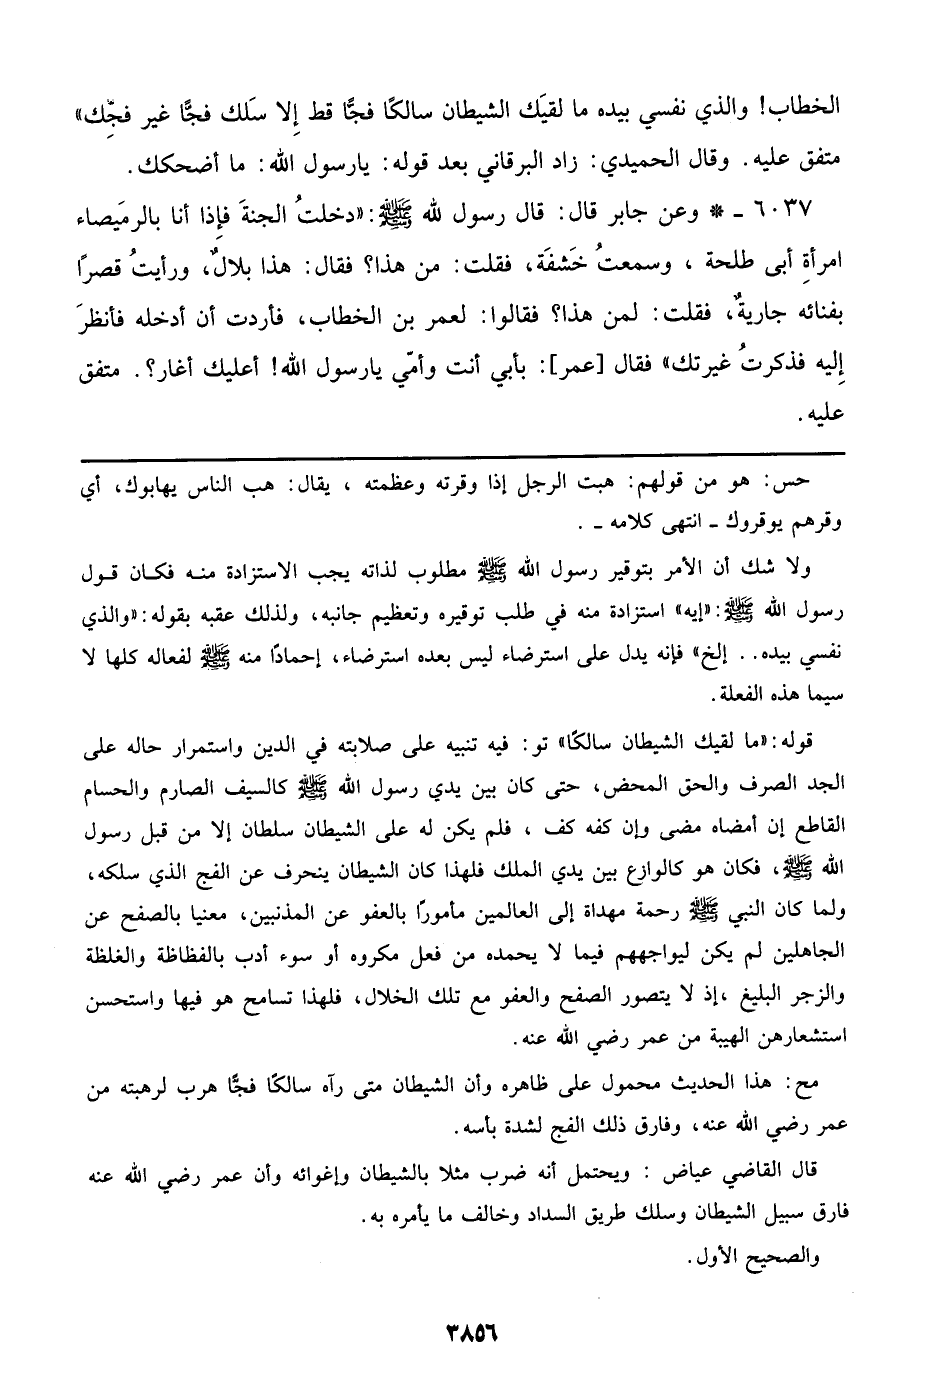 الخطاب! والذي نفسي بيده ما لقيَك الشيطان سالكًا فجًّا قط إِلا سلَك فجًّا غير فجِّك»
متفق عليه. وقال الحميدي: زاد البرقاني بعد قوله: يارسول الله: ما أضحكك.
٦٠٣٧ ـ * وعن جابر قال: قال رسول لله ﷺ: «دخلتُ الجنةَ فإِذا أنا بالرمَيصاء
امرأةِ أبى طلحة ، وسمعتُ خَشفَة، فقلت: من هذا؟ فقال: هذا بلالٌ، ورأيتُ قصرًا
بفنائه جاريةٌ، فقلت: لمن هذا؟ فقالوا: لعمر بن الخطاب، فأردت أن أدخله فأنظرَ
إِليه فذكرتُ غيرتك» فقال [عمر]: بأبي أنت وأمّي يارسول الله! أعليك أغار؟. متفق
عليه.
حس: هو من قولهم: هبت الرجل إذا وقرته وعظمته ، يقال: هب الناس يهابوك، أي
وقرهم يوقروك ـ انتهى كلامه ـ .
ولا شك أن الأمر بتوقير رسول الله ﷺ مطلوب لذاته يجب الاستزادة منه فكان قول
رسول الله ﷺ: «إيه» استزادة منه في طلب توقيره وتعظيم جانبه، ولذلك عقبه بقوله: «والذي
نفسي بيده.. إلخ» فإنه يدل على استرضاء ليس بعده استرضاء، إحمادًا منه ﷺ لفعاله كلها لا
سيما هذه الفعلة.
قوله: «ما لقيك الشيطان سالكًا» تو: فيه تنبيه على صلابته في الدين واستمرار حاله على
الجد الصرف والحق المحض، حتى كان بين يدي رسول الله ﷺ كالسيف الصارم والحسام
القاطع إن أمضاه مضى وإن كفه كف ، فلم يكن له على الشيطان سلطان إلا من قبل رسول
الله ﷺ، فكان هو كالوازع بين يدي الملك فلهذا كان الشيطان ينحرف عن الفج الذي سلكه،
ولما كان النبي ﷺ رحمة مهداة إلى العالمين مأمورًا بالعفو عن المذنبين، معنيا بالصفح عن
الجاهلين لم يكن ليواجههم فيما لا يحمده من فعل مكروه أو سوء أدب بالفظاظة والغلظة
والزجر البليغ ،إذ لا يتصور الصفح والعفو مع تلك الخلال، فلهذا تسامح هو فيها واستحسن
استشعارهن الهيبة من عمر رضي الله عنه.
مح: هذا الحديث محمول على ظاهره وأن الشيطان متى رآه سالكًا فجًّا هرب لرهبته من
عمر رضي الله عنه، وفارق ذلك الفج لشدة بأسه.
قال القاضي عياض : ويحتمل أنه ضرب مثلا بالشيطان وإغوائه وأن عمر رضي الله عنه
فارق سبيل الشيطان وسلك طريق السداد وخالف ما يأمره به.
والصحيح الأول.
٣٨٥٦